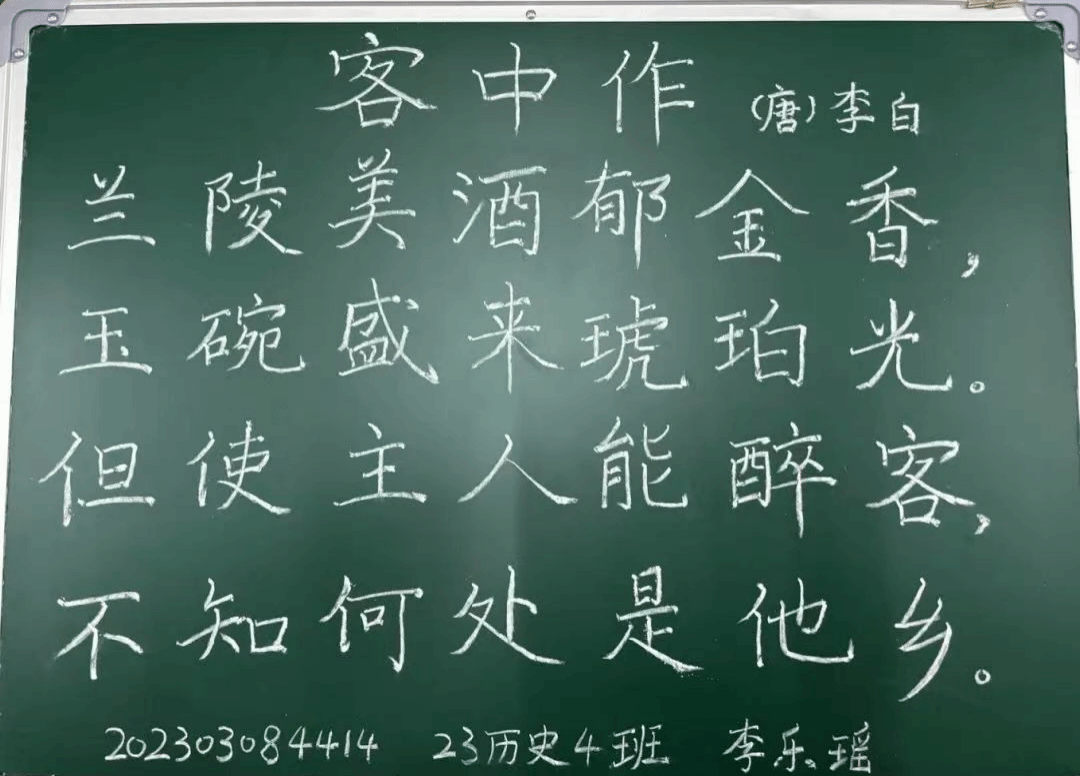 客中作 (唐)李白
兰陵美酒郁金香，
玉碗盛来琥珀光。
但使主人能醉客，
不知何处是他乡。
202303084414 23历史4班 李乐瑶